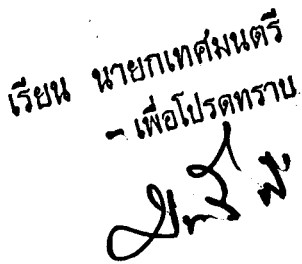 เรียน นายกเทศมนตรี
- เพื่อโปรดทราบ